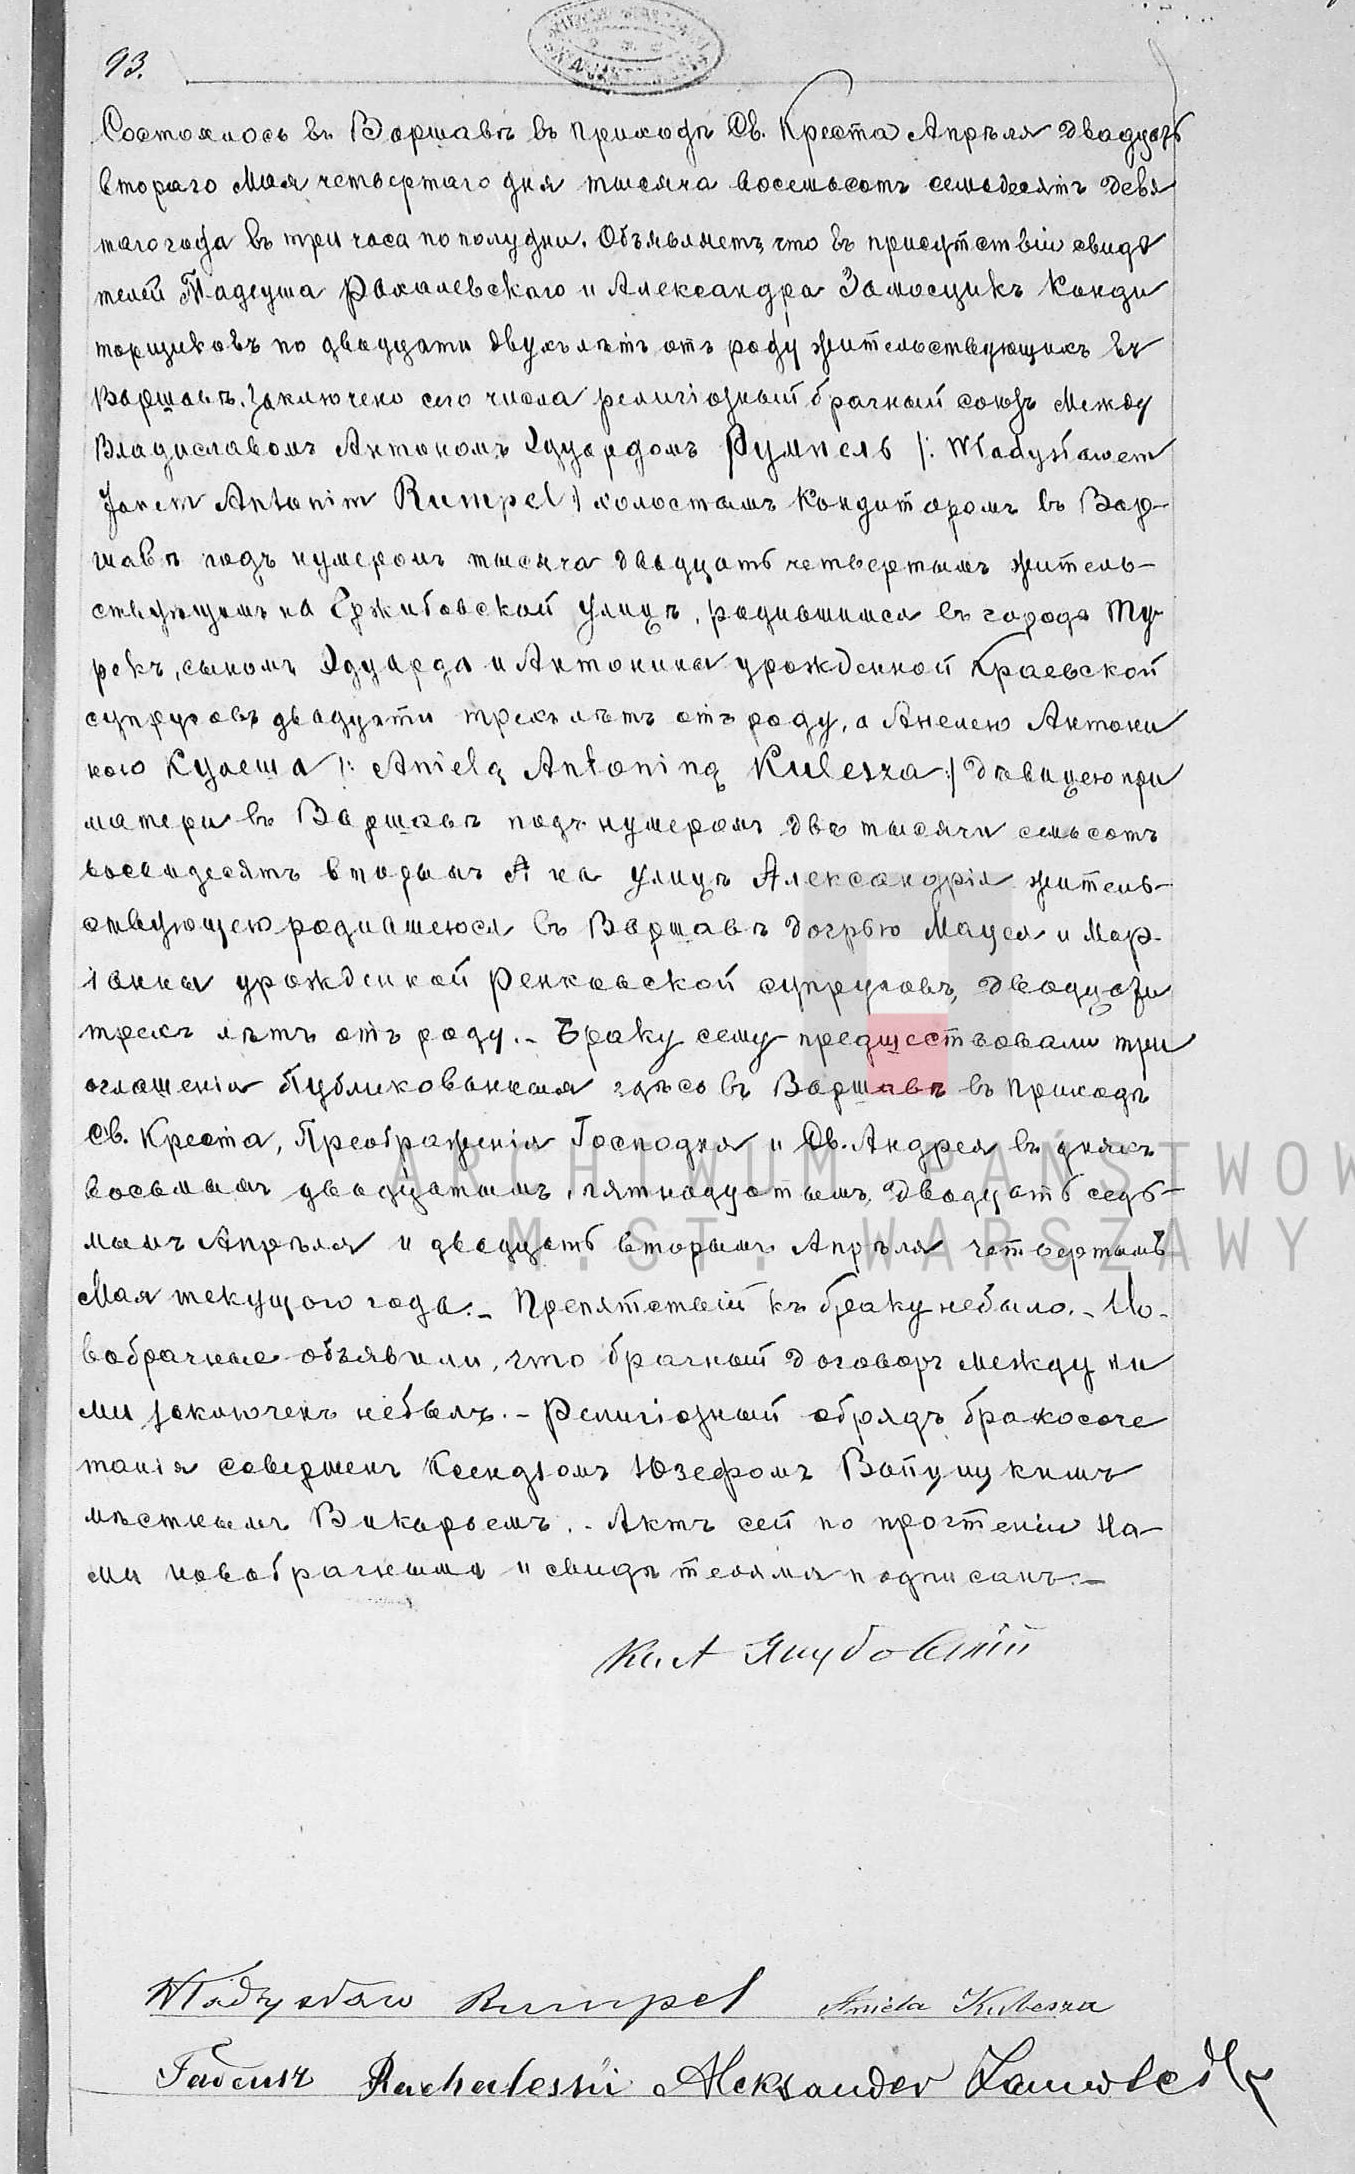 93.
Состоялось въ Варшавѣ въ приходѣ Св. Креста Апрѣля двадцать
втораго Мая четвертаго дня тысяча восемьсотъ семьдесятъ девя
таго года въ три часа по полудни. Объявляетъ, что въ присутствіи свидѣ
телей Тадеуша Рахалевскаго и Александра Замосцикъ Конди
торщиковъ по двадцати двухъ лѣтъ отъ роду жительствующихъ въ
Варшавѣ. Заключено сего числа религіозный брачный союзъ между
Владиславомъ Антономъ Эдуардомъ Румпель /: Władysławem
Janem Antonim Rumpel :/ холостымъ кондиторомъ въ Вар-
шавѣ подъ нумеромъ тысяча двадцать четвертымъ житель-
ствующимъ на Гржибовской улицѣ, родившимся въ городѣ Ту
рекъ, сыномъ Эдуарда и Антонины урожденной Краевской
супруговъ двадцати трехъ лѣтъ отъ роду, а Анелею Антони
ною Кулеша /: Anielą Antoniną Kulesza :/ дѣвицею при
матери въ Варшавѣ подъ нумеромъ двѣ тысячи семьсотъ
восемдесятъ вторымъ А на улицѣ Александрія житель-
ствующею родившеюся въ Варшавѣ дочрью Мацея и Мар-
іанны урожденной Ренковской супруговъ, двадцати
трехъ лѣтъ отъ роду. - Браку сему предшествовали три
оглашенія публикованныя здѣсо въ Варшавѣ въ приходѣ
Св. Креста, Преображенія Господня и Св. Андрея въ дняхъ
восьмымъ двадцатымъ, пятнадцатымъ, двадцать седь-
мымъ Апрѣля и двадцать вторымъ Апрѣля четвертымъ
Мая текущого года. - Препятствій къ браку небыло. - Но-
вобрачные объявили, что брачный договоръ между ни
ми заключенъ небылъ. - Религіозный обрядъ бракосоче
танія совершенъ Ксендзомъ Юзефомъ
мѣстнымъ Викарьемъ. - Актъ сей по прочтеніи На-
ми новобрачными и свидѣтелями подписанъ. -
Якубовскій
Władysław Rumpel Aniela Kulesza
Tadeusz Rachalesski Aleksander
ARCHIWUM PAŃSTWOW
M.ST. WARSZAWY